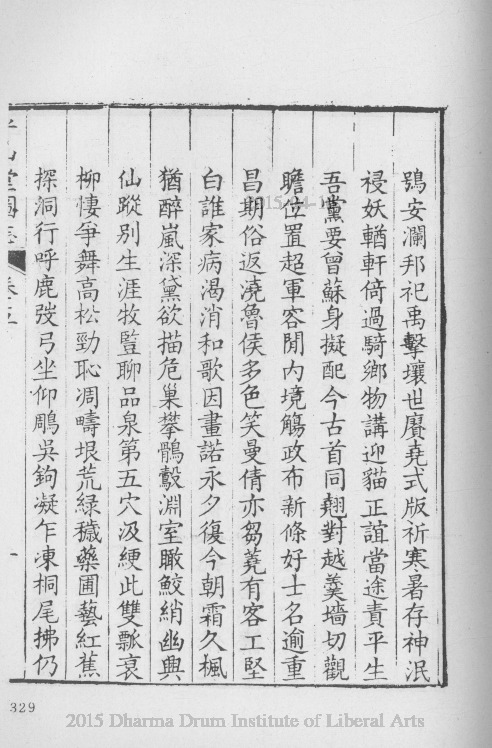 鴞安瀾邦祀禹擊壤世賡堯式版祈寒暑存神泯
祲妖輶軒倚過騎鄉物講迎貓正誼當途責平生
吾黨要曾蘇身擬配今古首同翹對越羹墻切觀
瞻位置超軍容閒內境觴政布新條好士名逾重
昌期俗返澆魯侯多色笑曼倩亦芻蕘有客工堅
白誰家病渴消和歌因畫諾永夕復今朝霜久楓
猶醉嵐深黛欲描危巢攀鶻鷇淵室瞰鮫綃幽興
仙蹤別生涯牧豎聊品泉第五穴汲綆此雙瓢哀
柳悽爭舞高松勁恥凋疇垠荒綠穢藥圃藝紅蕉
探洞行呼鹿弢弓坐仰鵰吳鉤凝乍凍桐尾拂仍
329
2015 Dharma Drum Institute of Liberal Arts